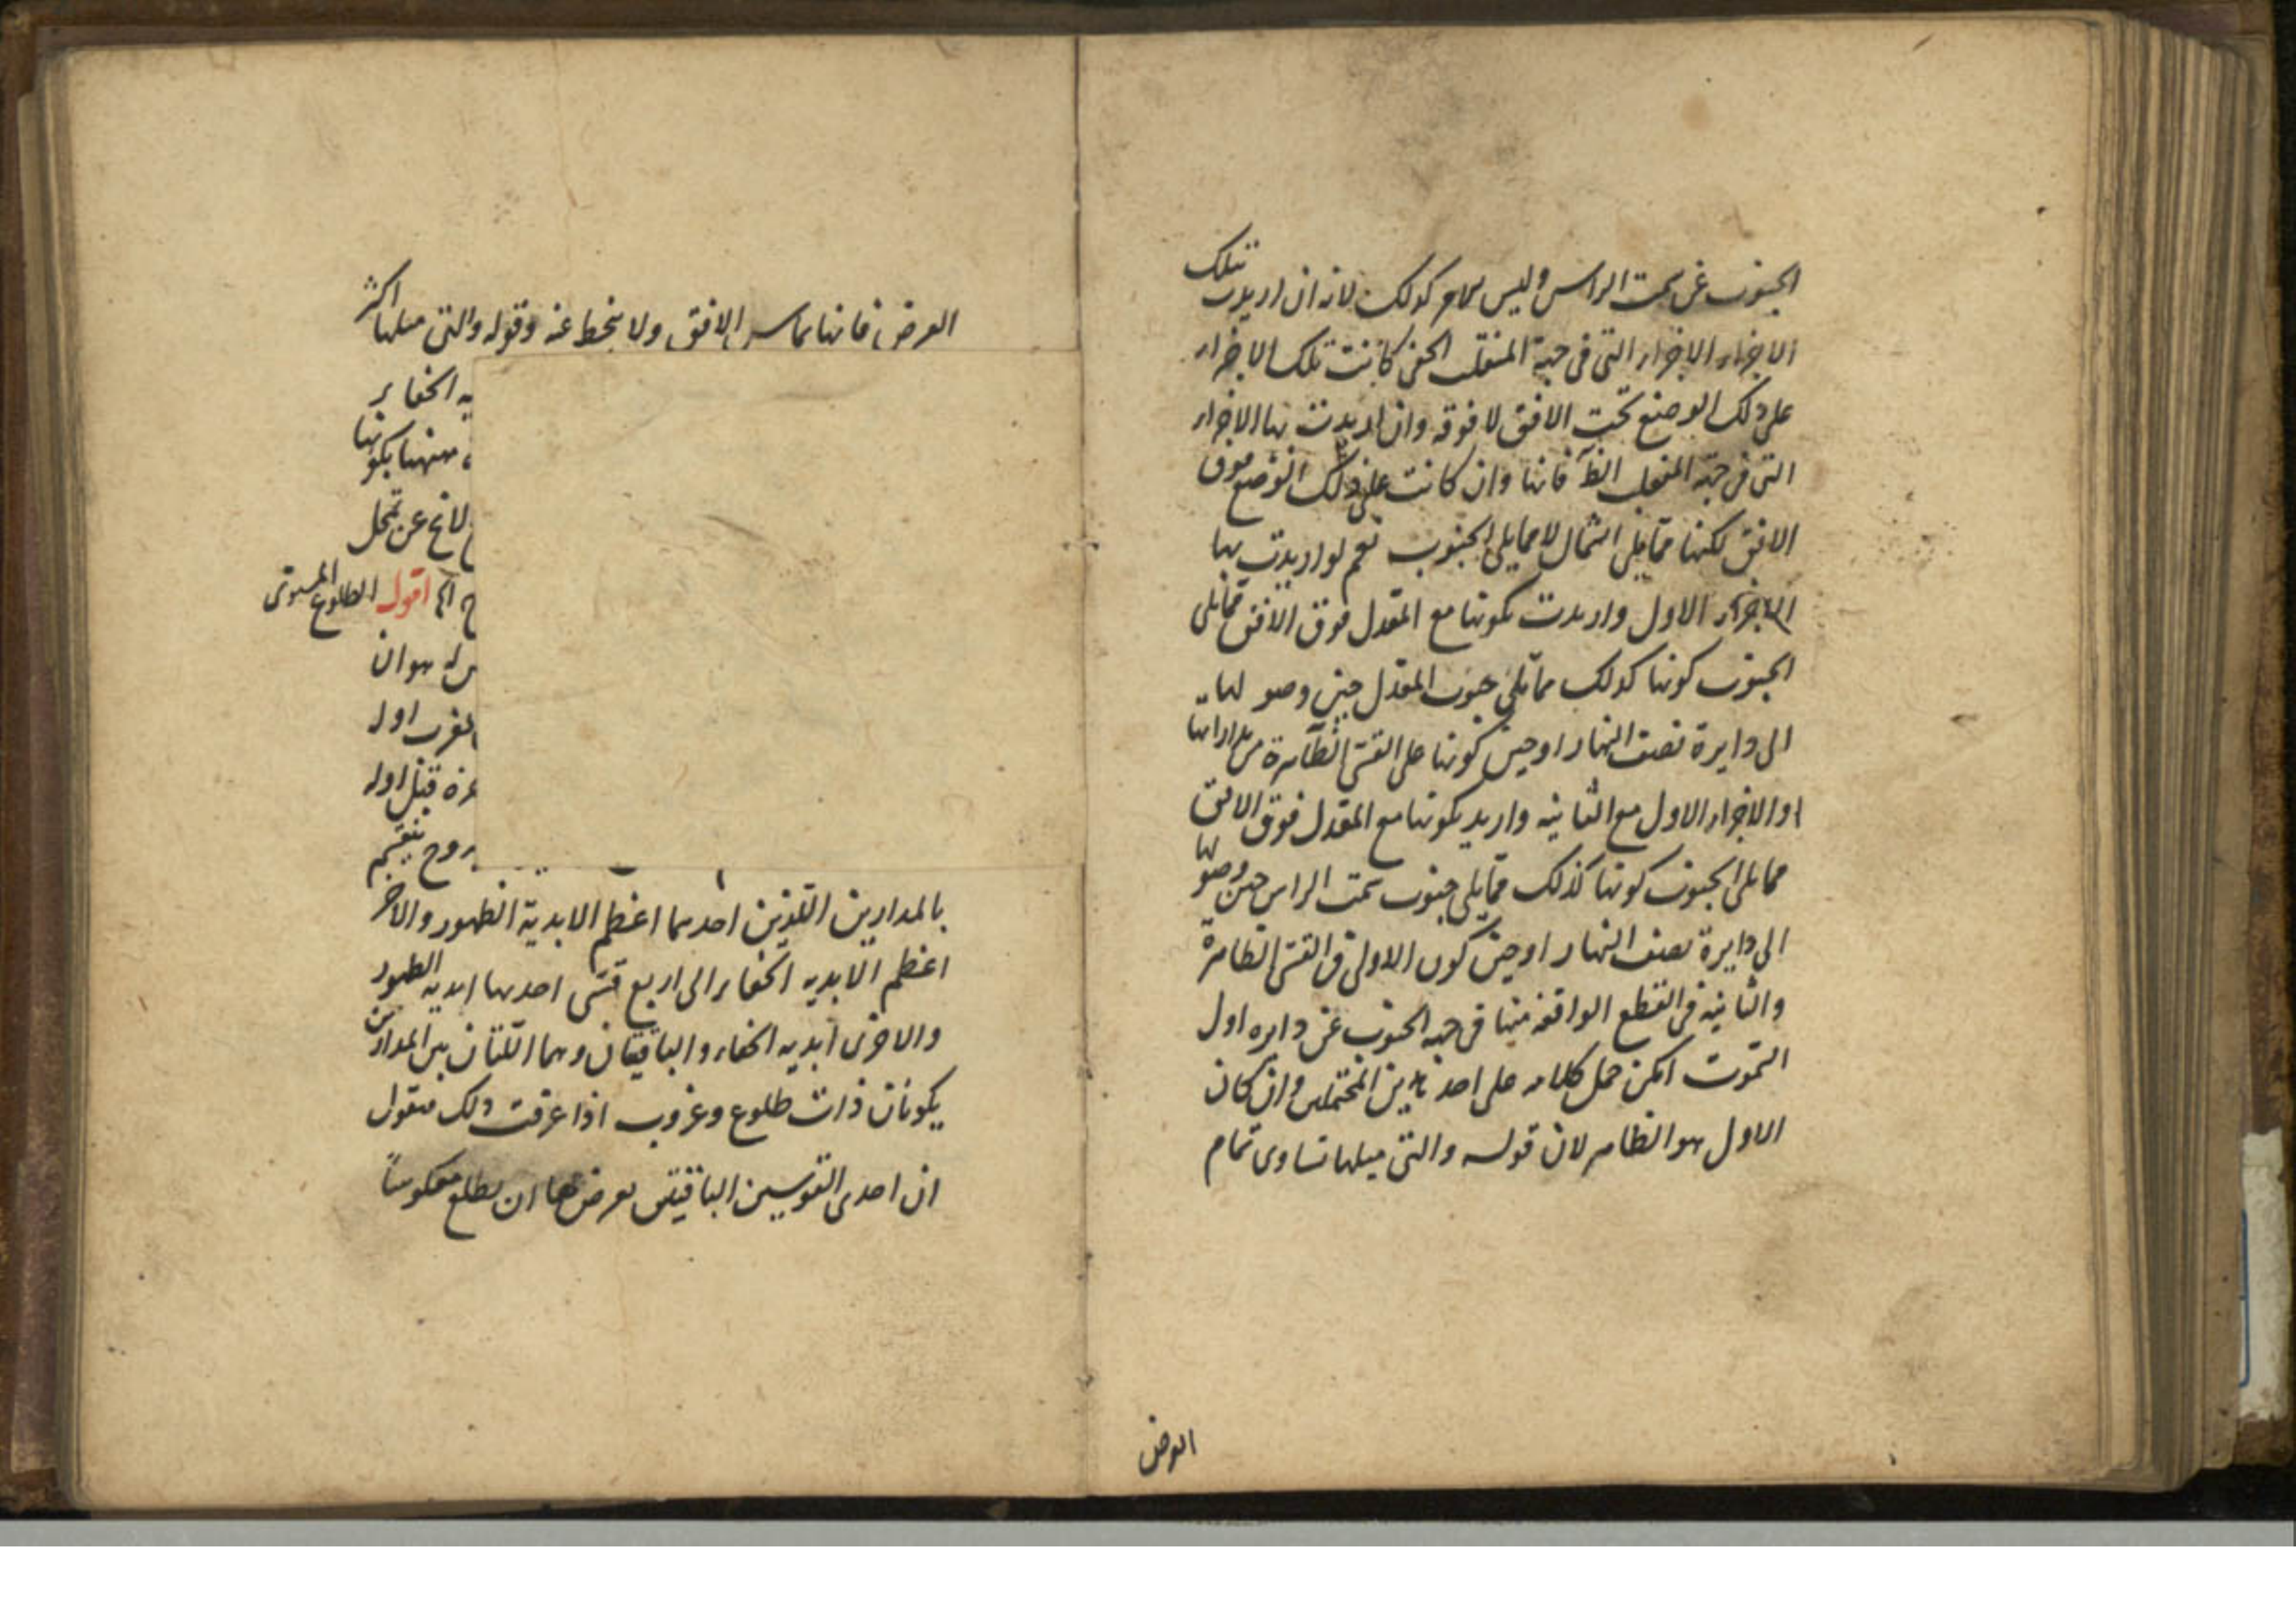 الجنوب عن سمت الراس وليس كذلك لانه ان اريدت بتلك
الاجزاء الاجزاء التى فى جهة المنقلب الخفى كانت تلك الاجزاء
على ذلك الوضع تحت الافق لا فوقه وان اريدت بها الاجزاء
التى فى جهة المنقلب الظ فانها وان كانت على ذلك الوضع فوق
الافق لكنها مما يلى الشمال لا مما يلى الجنوب نعم لو اريدت بها
الاجزاء الاول واريدت بكونها مع المعدل فوق الافق مما يلى
الجنوب كونها كذلك مما يلى جنوب المعدل حين وصولها
الى دايرة نصف النهار او حين كونها على القسى الظاهرة من مداراتها
او الاجزاء الاول مع الثانيه واريد بكونها مع المعدل فوق الافق
مما يلى الجنوب كونها كذلك مما يلى جنوب سمت الراس حين وصولها
الى دايرة نصف النهار او حين كون الاولى فى القسى الظاهرة
والثانيه فى القطع الواقعه منها فى جهة الجنوب عن دايره اول
السموت امكن حمل كلامه على احد هذين المحتملين وان كان
الاول هو الظاهر لان قوله والتى ميلها تساوى تمام
العرض
العرض فانها تماس الافق ولا ينحط عنه وقوله والتى ميلها اكثر
يه الخفاء
منهما بكونها
لا يخ عن تمحل
اقول الطلوع المستوى
له هو ان
المغرب اول
قبل اوله
روج ينقسم
بالمدارين اللذين احدهما اعظم الابدية الظهور والاخر
اعظم الابديه الخفاء الى اربع قسى احدىها ابديه الظهور
والاخرى ابديه الخفاء والباقيتان وهما اللتان بين المدارين
يكونان ذات طلوع وغروب اذا عرفت ذلك فنقول
ان احدى القوسين الباقيتين يعرض لها ان يطلع معكوسا